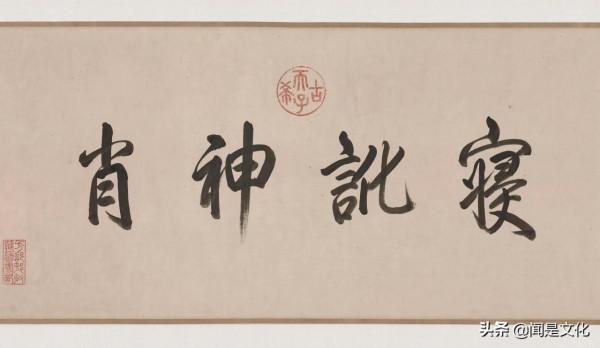 古希天子
寢訛神肖
头条 @闻是文化